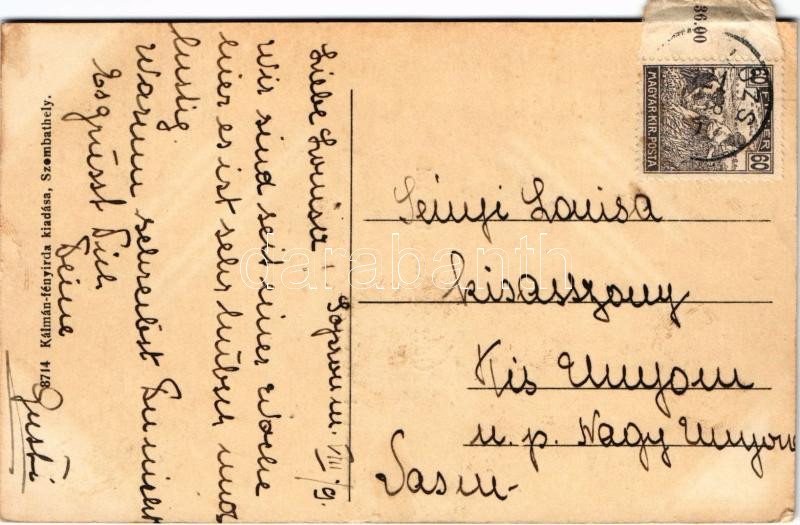 Liebe Louisa!
Sopron m. VIII/9.
Wir sind seit einer Woche
hier es ist sehr hübsch und
lustig.
Warum schreibst Du nicht
Es grüsst Dich
Deine
Gusti
8714 Kálmán-fényirda kiadása, Szombathely.
36.00
60 FILLÉR 60
MAGYAR KIR. POSTA
Louisa
kisasszony
Kis Unyom
u. p. Nagy Unyom
Vasm-
darabanth